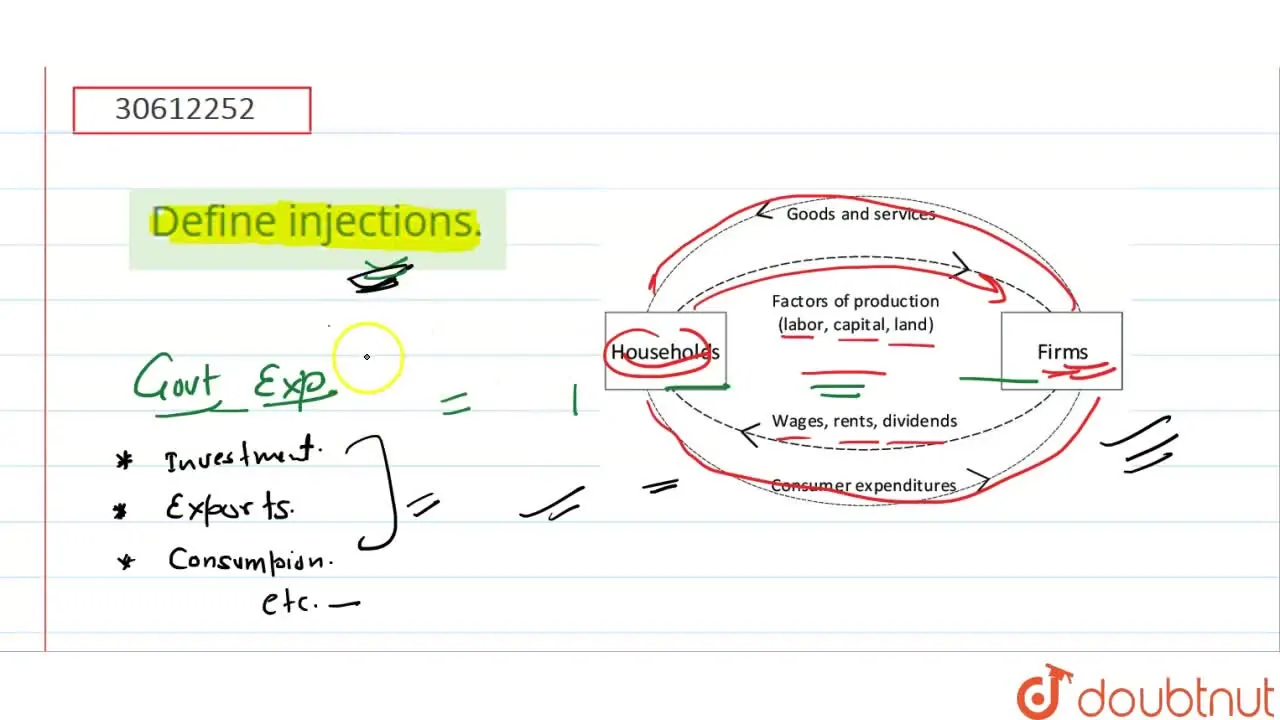 30612252
Define injections.
Govt Exp.
* Investment.
* Exports.
* Consumpion.
etc.
Goods and services
Factors of production
(labor, capital, land)
Households
Firms
Wages, rents, dividends
Consumer expenditures
doubtnut